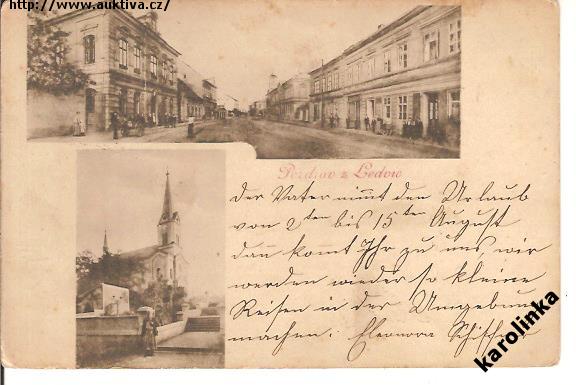 http://www.auktiva.cz/
Pozdrav z Ledvic
Der Vater nimmt den Urlaub
von 2ten bis 15ten August
dann kommt Ihr zu uns, wir
werden wieder so kleine
Reisen in der Umgebung
machen. Eleonora
karolinka